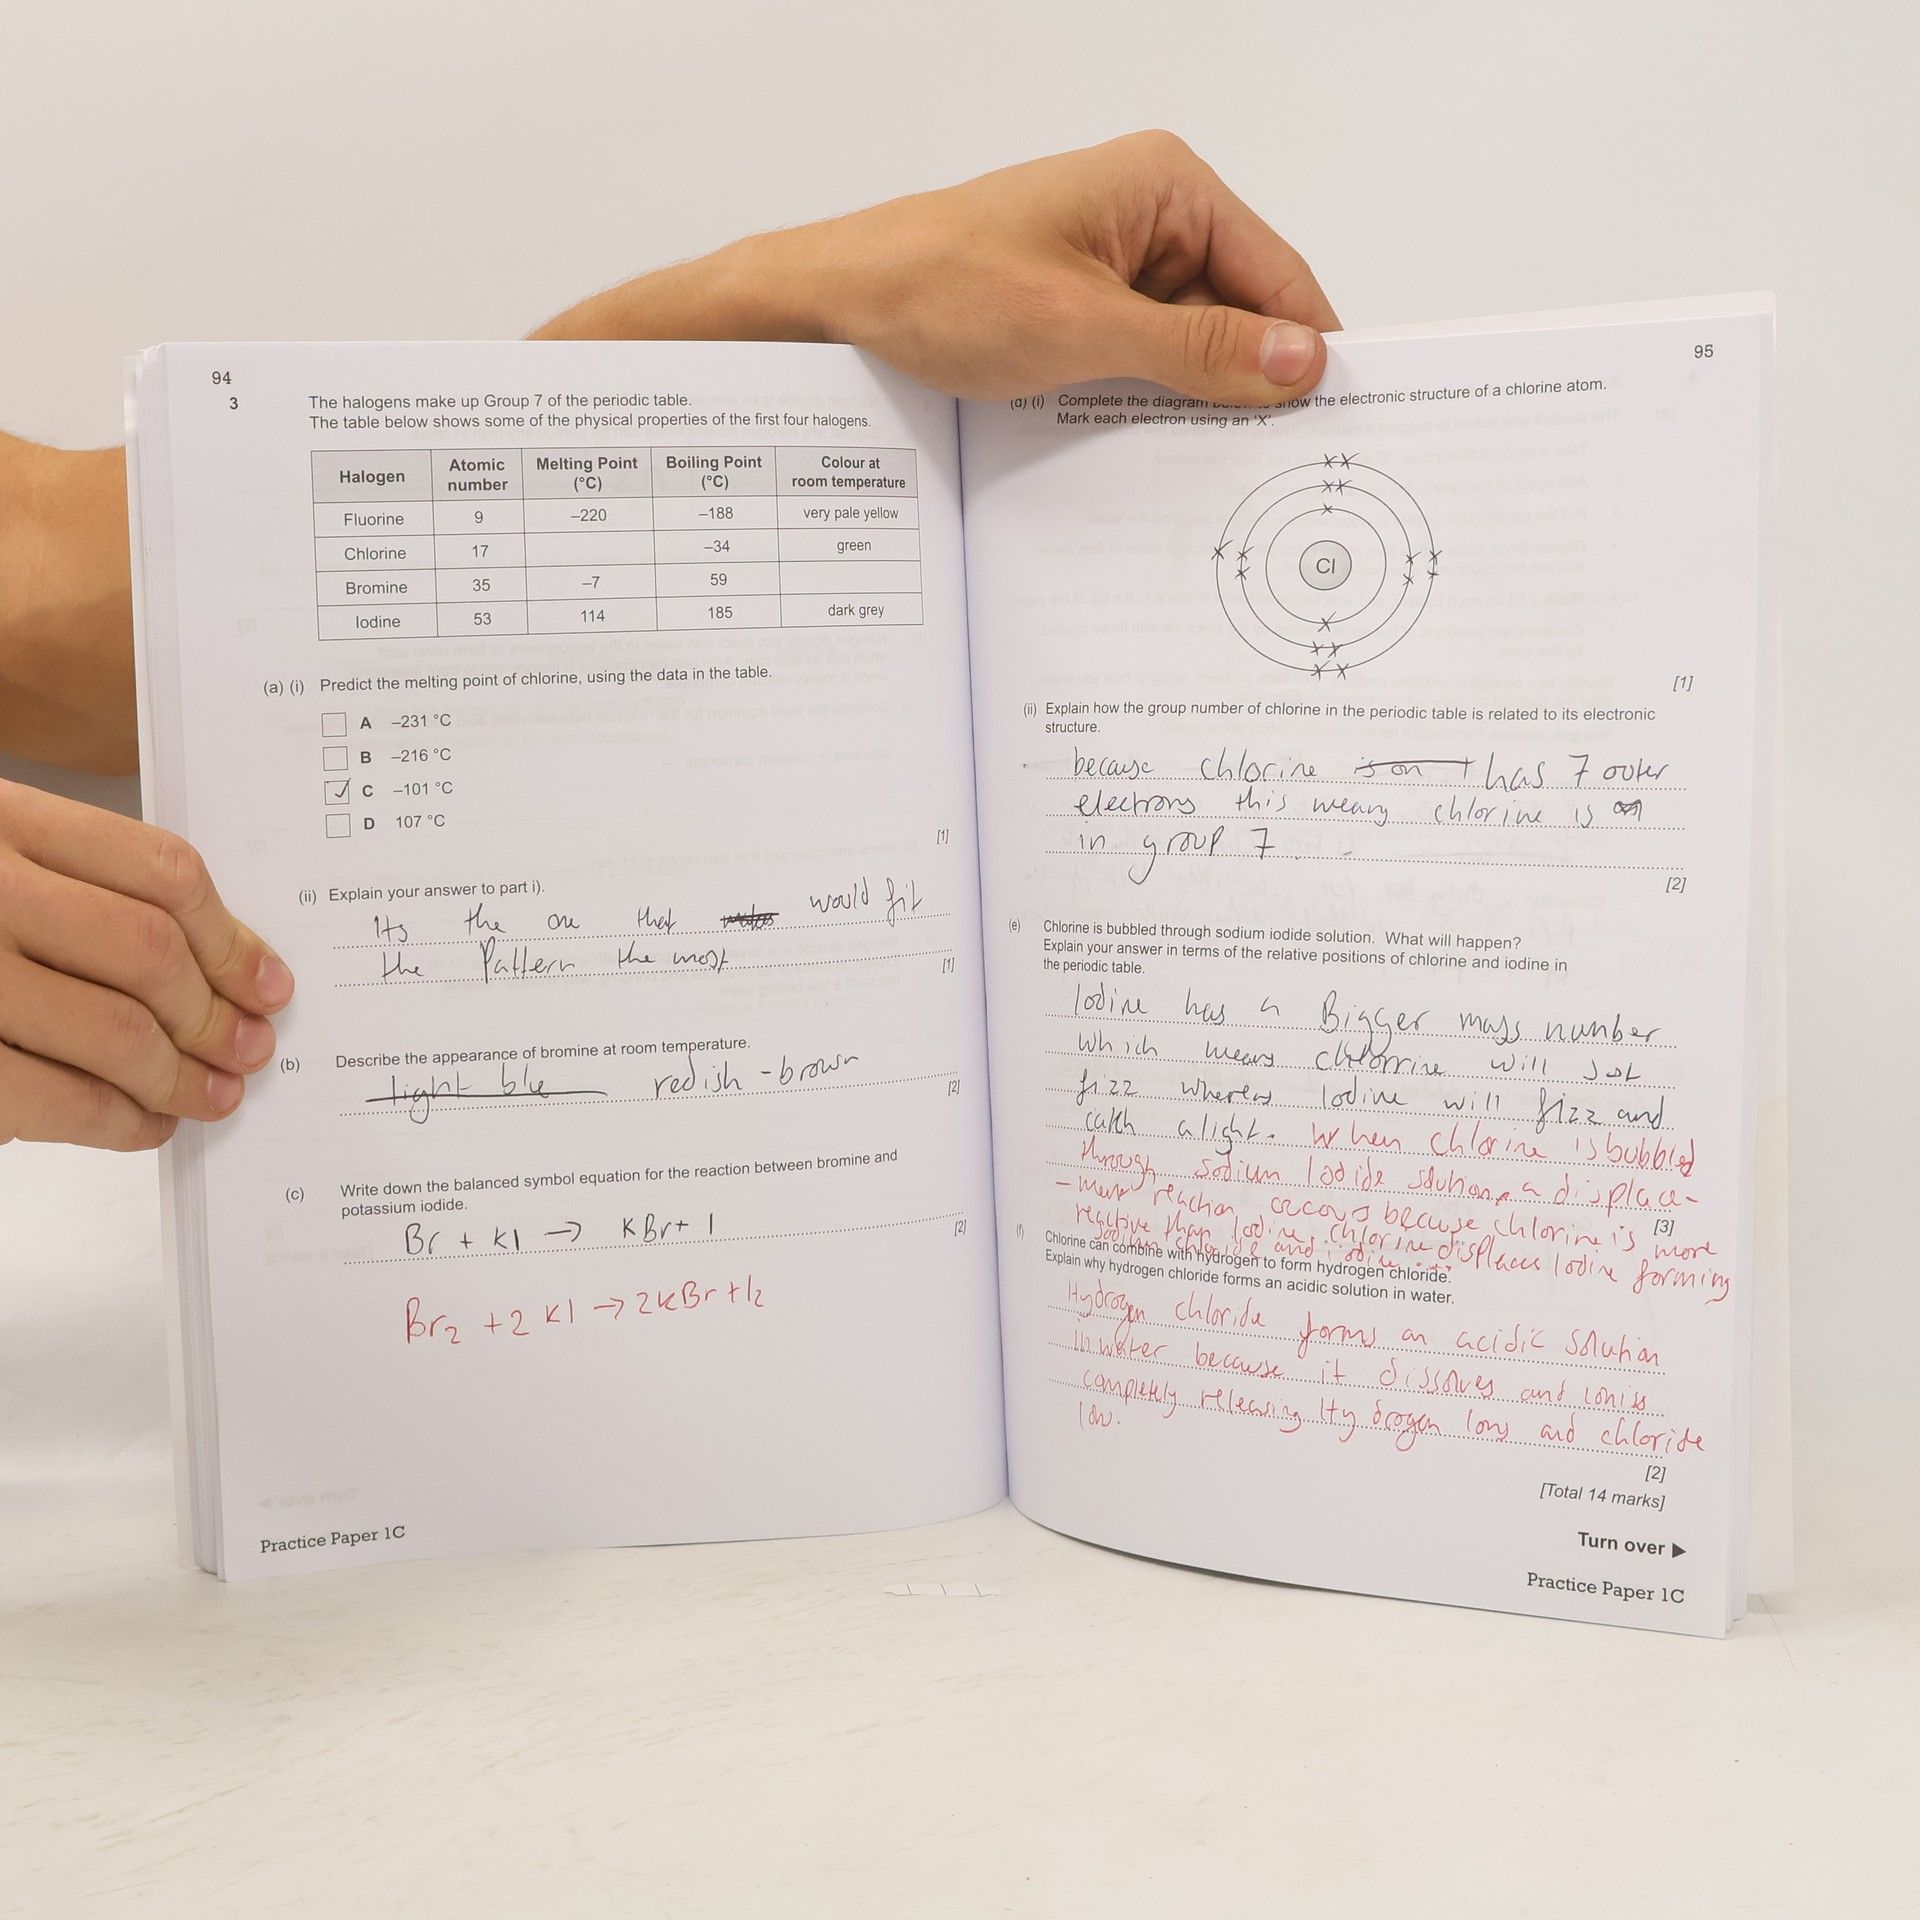 94
3
The halogens make up Group 7 of the periodic table.
The table below shows some of the physical properties of the first four halogens.
Halogen Atomic number Melting Point (°C) Boiling Point (°C) Colour at room temperature
Fluorine 9 –220 –188 very pale yellow
Chlorine 17 –34 green
Bromine 35 –7 59
Iodine 53 114 185 dark grey
(a) (i) Predict the melting point of chlorine, using the data in the table.
A –231 °C
B –216 °C
✓ C –101 °C
D 107 °C
[1]
(ii) Explain your answer to part i).
Its the one that would fit
the Pattern the most
[1]
(b) Describe the appearance of bromine at room temperature.
light blue redish - brown
[2]
(c) Write down the balanced symbol equation for the reaction between bromine and
potassium iodide.
Br + KI → KBr + I
[2]
Br2 + 2 KI → 2KBr + I2
Practice Paper 1C
95
(d) (i) Complete the diagram show the electronic structure of a chlorine atom.
Mark each electron using an 'X'.
Cl
[1]
(ii) Explain how the group number of chlorine in the periodic table is related to its electronic
structure.
because chlorine is on has 7 outer
electrons this means chlorine is
in group 7
[2]
(e) Chlorine is bubbled through sodium iodide solution. What will happen?
Explain your answer in terms of the relative positions of chlorine and iodine in
the periodic table.
Iodine has a Bigger mass number
which means chlorrine will just
fizz whereas Iodine will fizz and
catch alight. When chlorine is bubbled
through sodium Iodide solution, a displace-
-ment reaction occurs because chlorine is more
[3]
reactive than Iodine. Chlorine displaces Iodine forming
sodium chloride and iodine ...
(f) Chlorine can combine with hydrogen to form hydrogen chloride.
Explain why hydrogen chloride forms an acidic solution in water.
Hydrogen chloride forms an acidic solution
in water because it dissolves and ioniss
completely releasing Hydrogen Ions and chloride
Ion.
[2]
[Total 14 marks]
Turn over
Practice Paper 1C